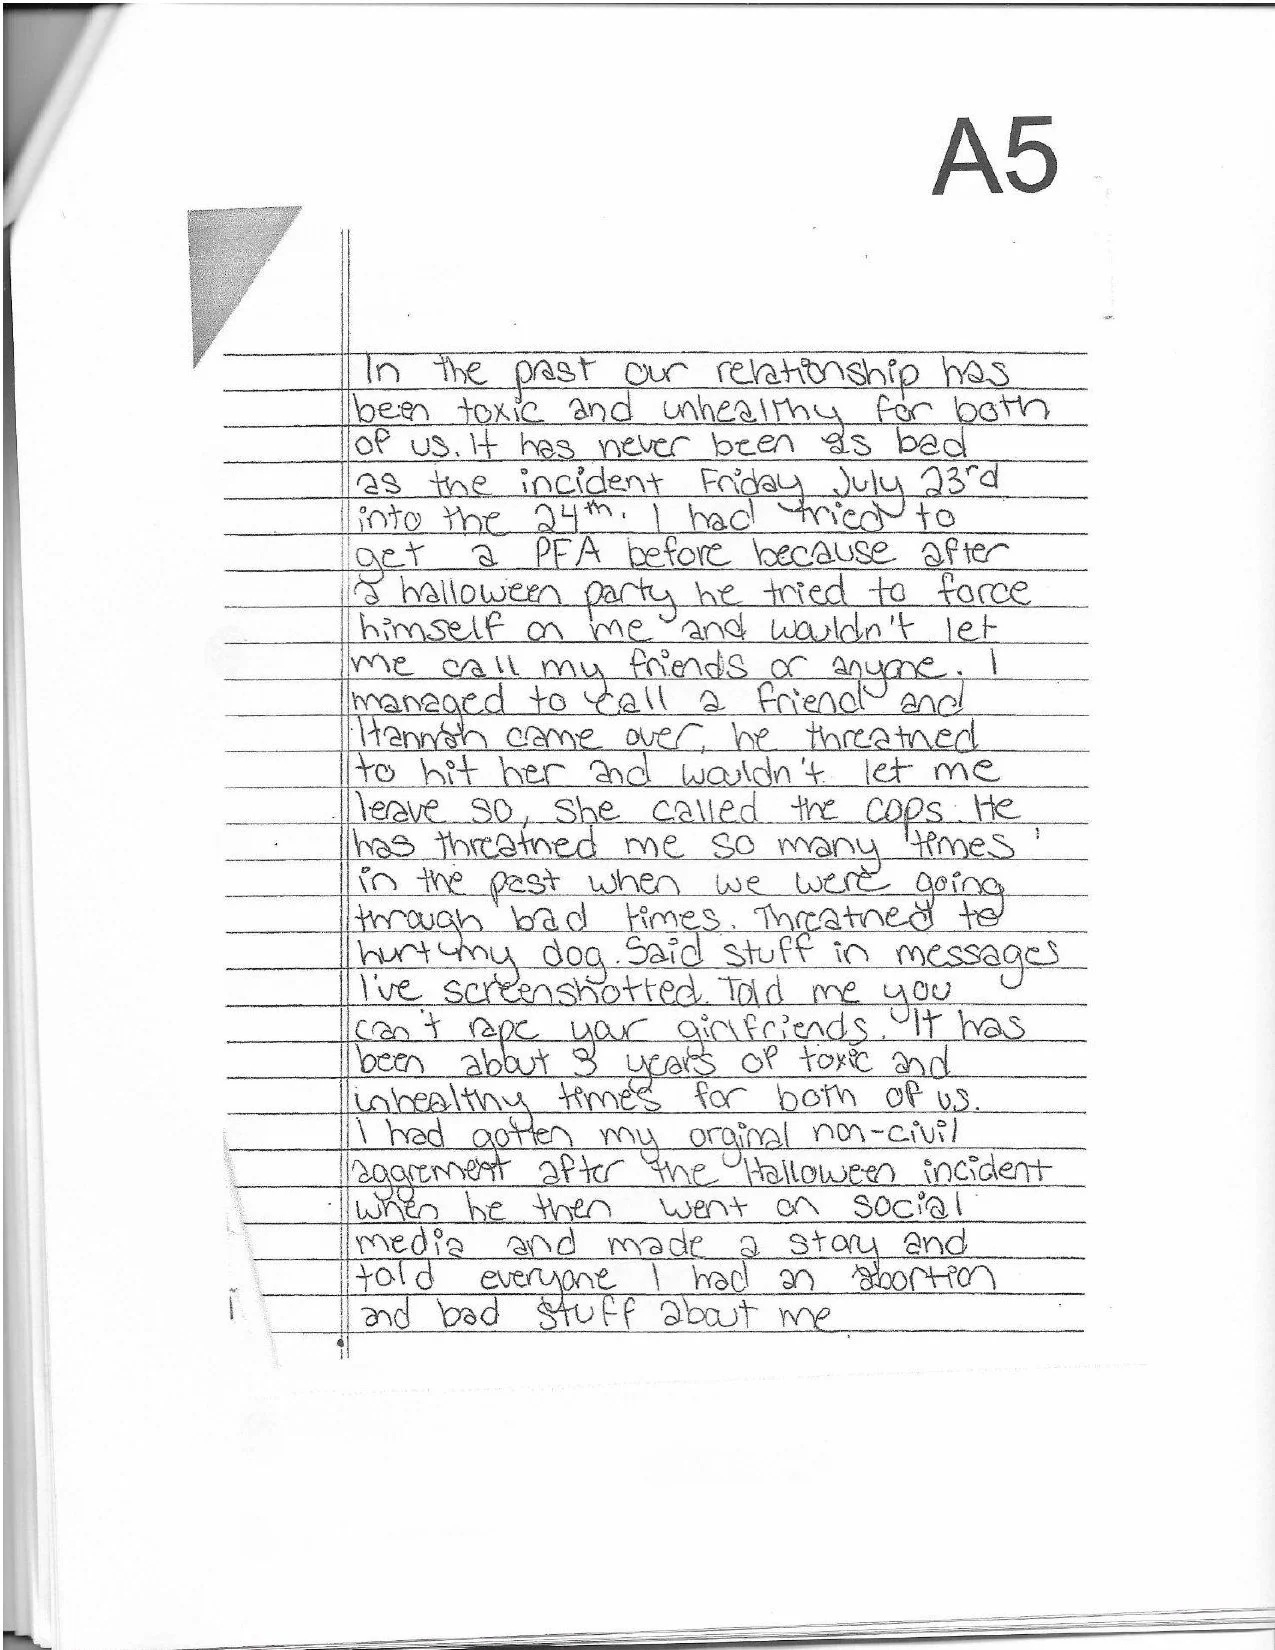 A5
In the past our relationship has
been toxic and unhealthy for both
of us. It has never been as bad
as the incident Friday July 23rd
into the 24th. I had tried to
get a PFA before because after
a halloween party he tried to force
himself on me and wouldn't let
me call my friends or anyone. I
managed to call a friend and
Hannah came over, he threatned
to hit her and wouldn't let me
leave so, she called the cops. He
has threatned me so many times
in the past when we were going
through bad times. Threatned to
hurt my dog. Said stuff in messages
I've screenshotted. Told me you
can't rape your girlfriends. It has
been about 3 years of toxic and
unhealthy times for both of us.
I had gotten my orginal non-civil
aggrement after the Halloween incident
when he then went on social
media and made a story and
told everyone I had an abortion
and bad stuff about me